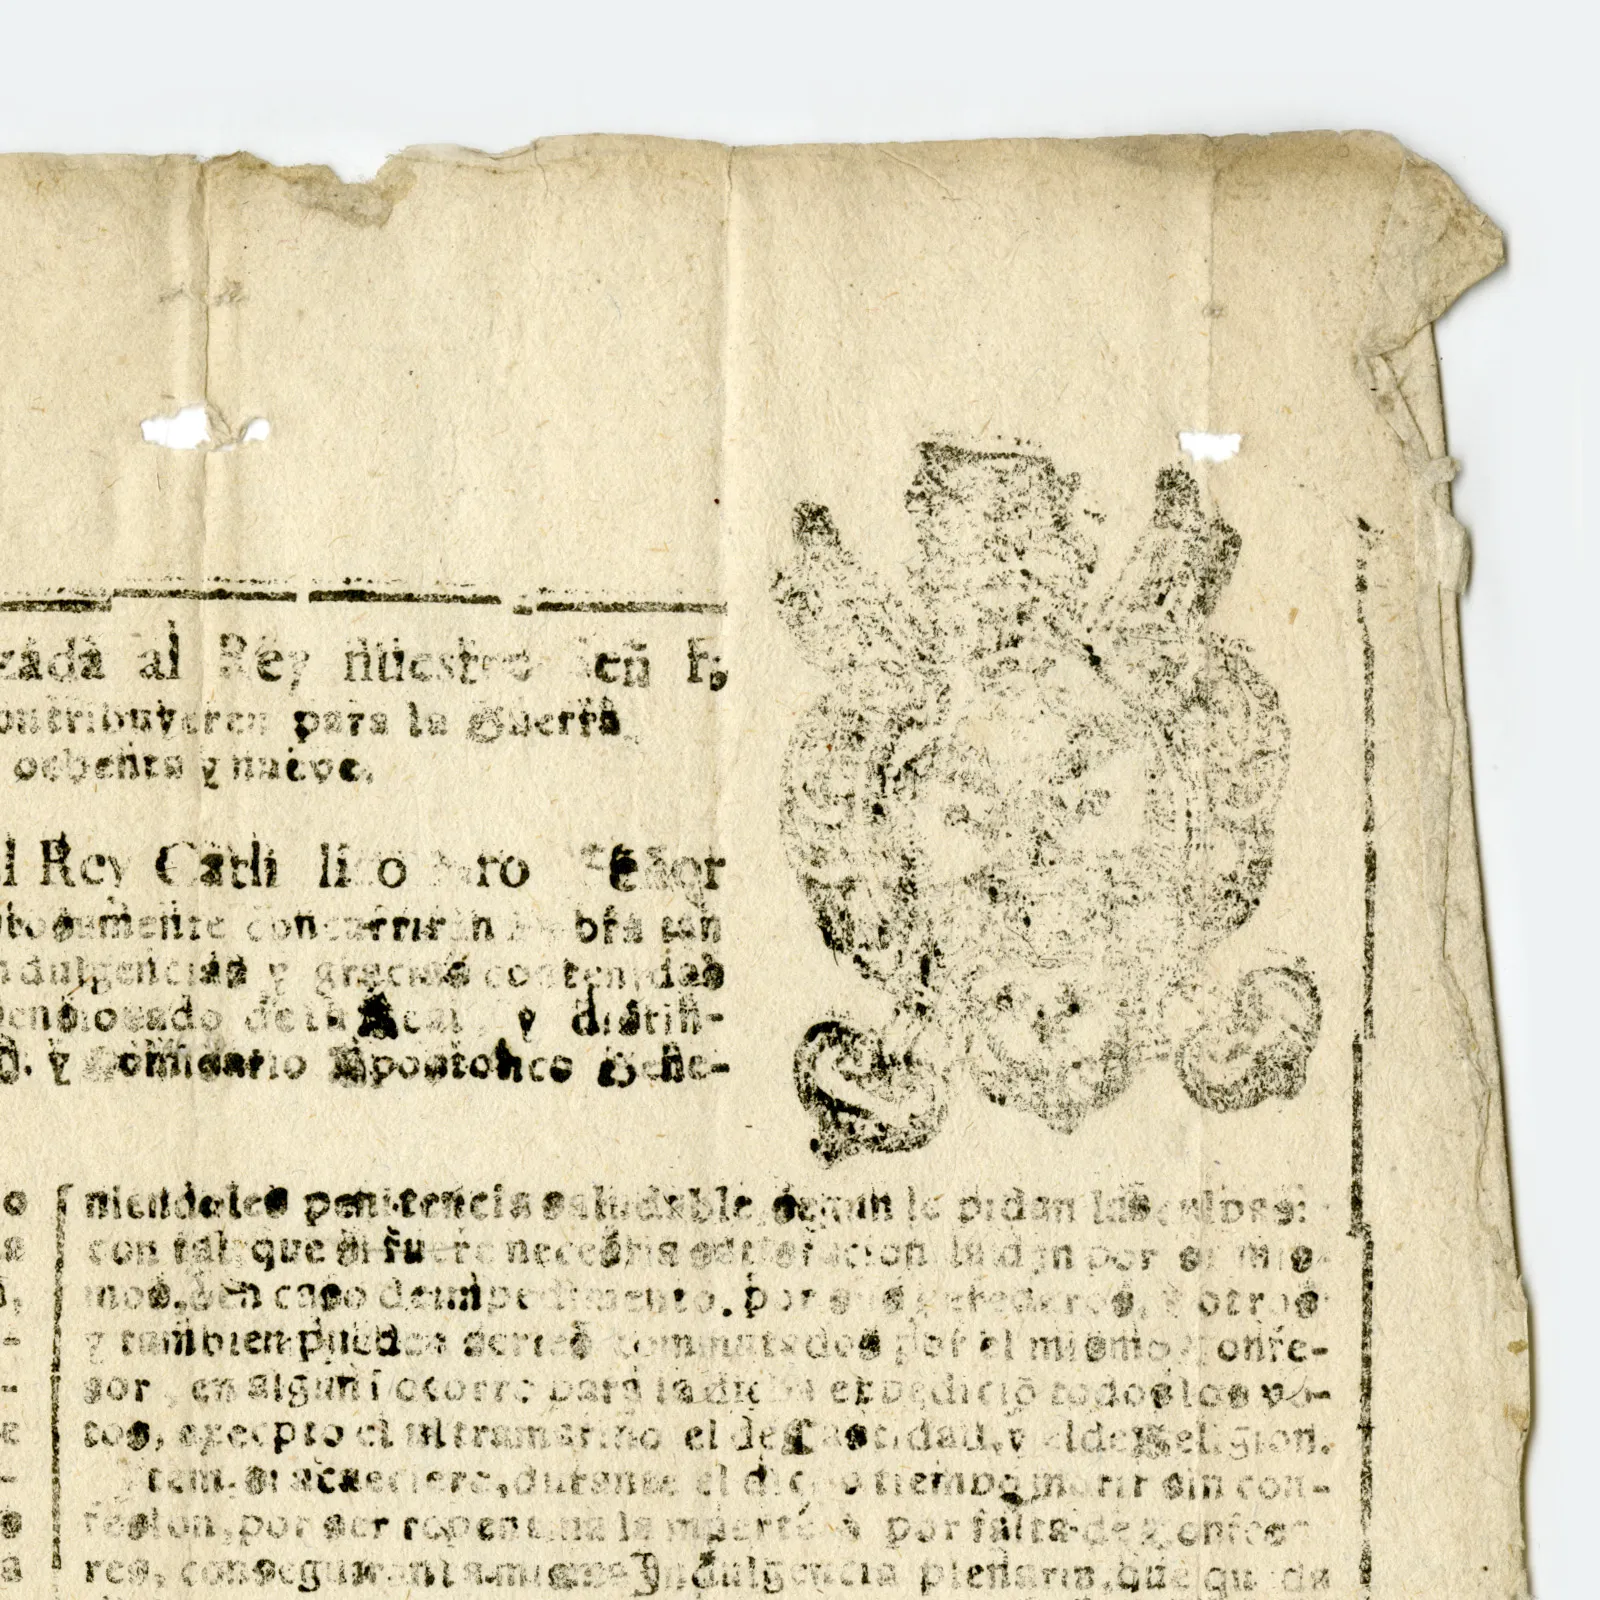 zada al Rey nuestro Señ r,
ontribuyeren para la Guerra
ochenta y nueve.
l Rey Cath lico ñro Señor
tuosamente concurrirán obra tan
ndulgencias y gracias contenidas
Pensionado de la Real, y distin-
D. y Comisario Apostolico Gene-
o
niendoles penitencia saludable, segun lo pidan las culpas:
a
con tal, que si fuere necesaria satisfacion la dén por sí mis-
mos, ò en caso de impedimento, por sus herederos, y otros:
y tambien puedan serles commutados por el mismo Confe-
sor, en algun socorro para la dicha expedició todos los vo-
e
tos, execpto el ultramarino el de Castidad, y el de Religion.
Ytem. si acaeciere, durante el dicho tiempo morir sin con-
s
fesion, por ser repentina la muerte ò por falta de Confeso-
a
res, conseguiran la misma Indulgencia plenaria, que queda